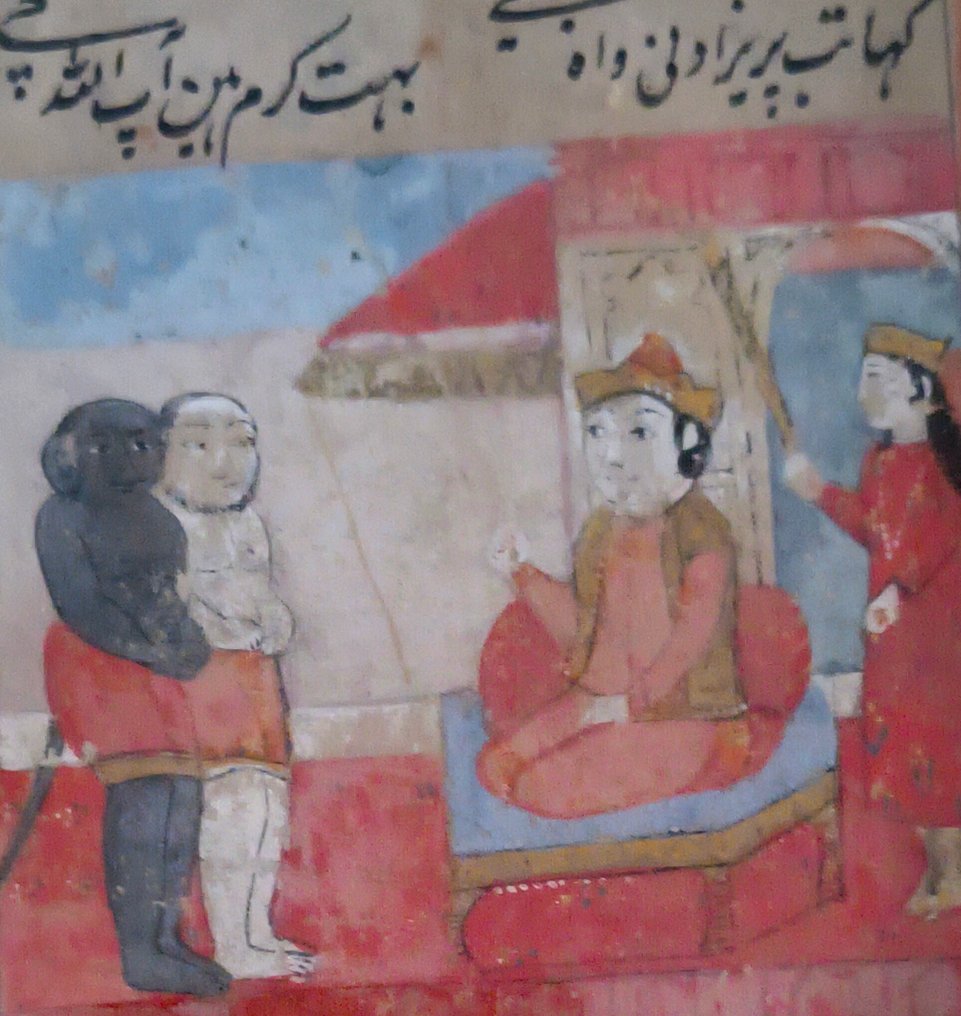 کہا تب پریزاد نی واہ جی بہت کرم ہین آپ اللہ جی